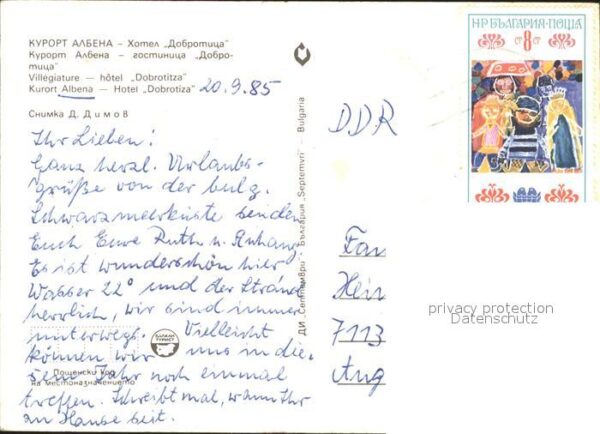 КУРОРТ АЛБЕНА – Хотел „Добротица"
Курорт Албена – гостиница „Добро-
тица"
Villégiature — hôtel „Dobrotitza"
Kurort Albena — Hotel „Dobrotiza"
20.9.85
Снимка Д. Димов
Ihr Lieben!
Ganz herzl. Urlaubs-
grüße von der bulg.
Schwarzmeerküste senden
Euch Eure Ruth u. Anhang
Es ist wunderschön hier
Wasser 22° und der Strand
herrlich, wir sind immer
unterwegs. Vielleicht
können wir uns in die-
sem Jahr noch einmal
treffen. Schreibt mal, wann Ihr
zu Hause seit.
БАЛКАН
ТУРИСТ
Пощенски код
на местоназначението
ДИ „Септември" - България „Septemvri" - Bulgaria
НР БЪЛГАРИЯ·ПОЩА
СТ 8 СТ
DDR
Fam
Hein
7113
Aug
privacy protection
Datenschutz